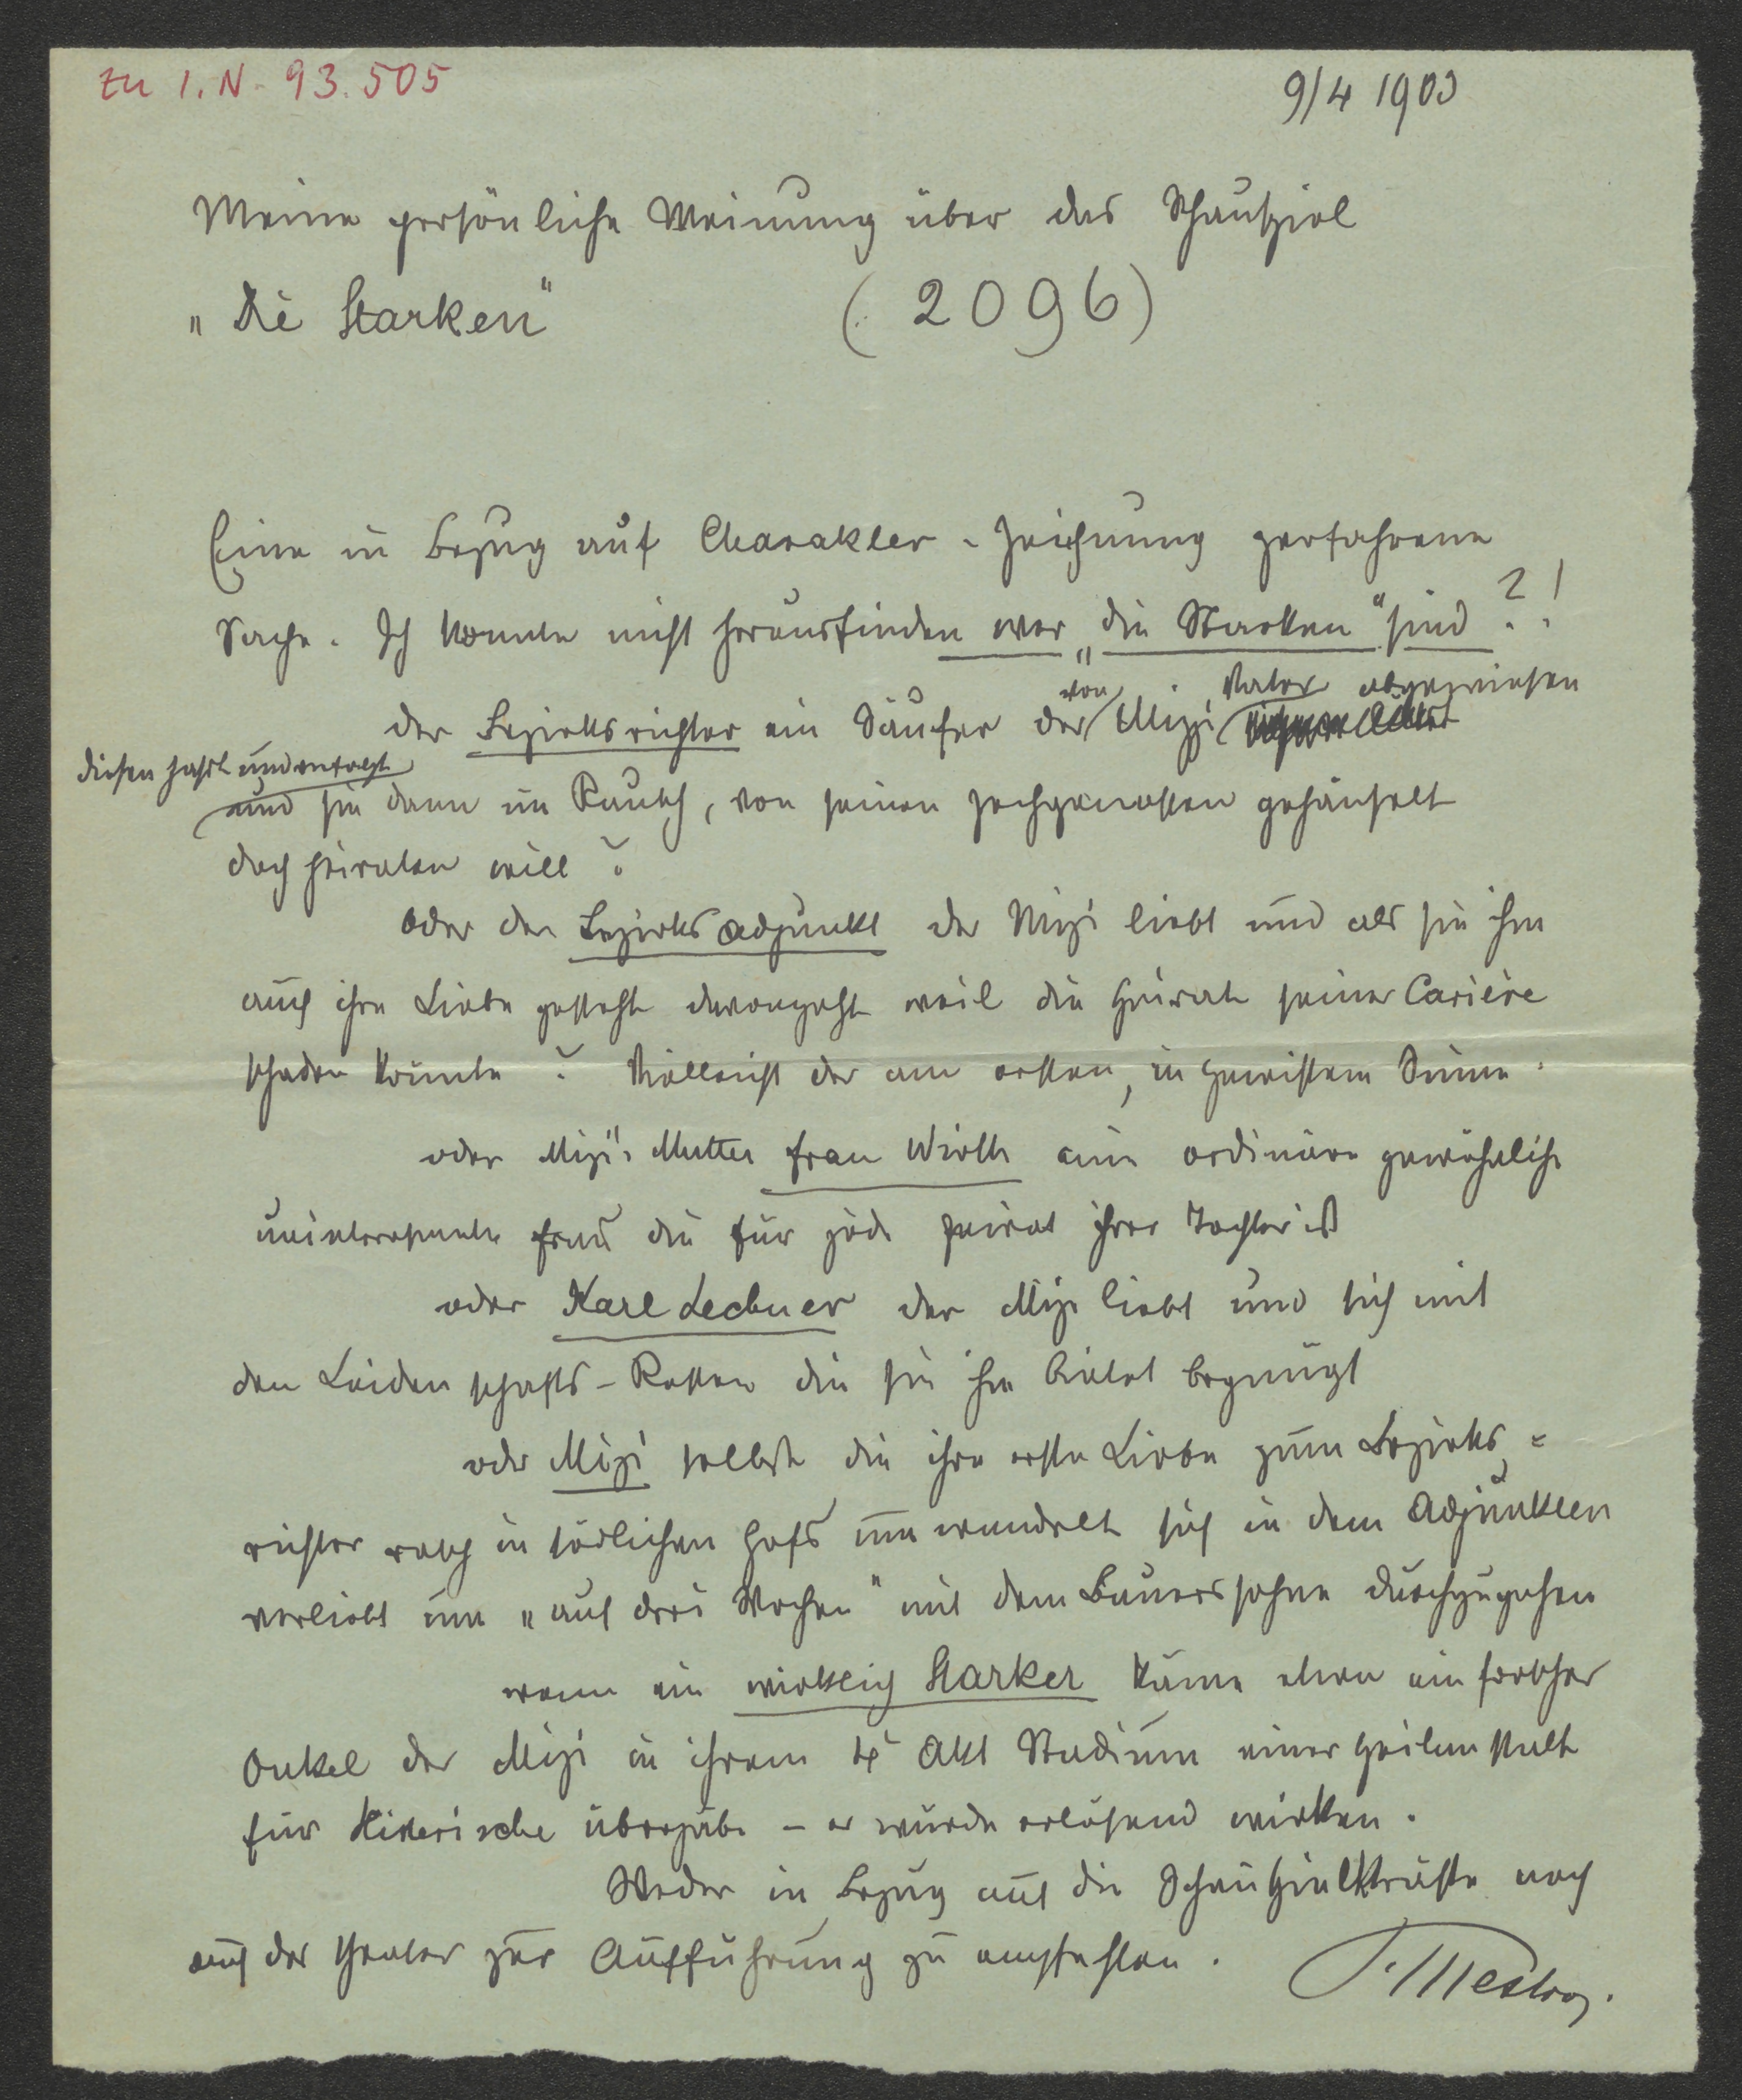 zu I.N. 93.505
9/4 1903
Meine persönliche Meinung über das Schauspiel
„Die Starken" (2096)
Eine in Bezug auf Charakter-Zeichnung zerfahrene
Sache. Ich konnte nicht herausfinden wer „die Starken" sind?!
der Bezirksrichter ein Säufer der von Mizi Vater abgewiesen
diesen haßt und verfolgt
und sie dann im Rausch, von seinen Zechgenossen gehänselt
doch heiraten will?
Oder der Bezirksadjunkt der Mizi liebt und als sie ihm
auch ihre Liebe gesteht davongeht weil die Heirat seiner Carière
schaden könnte? Vielleicht der am ersten, in gewissem Sinne.
oder Mizi's Mutter Frau Wirth eine ordinäre gewöhnliche
uninteressante Frau die für jede Heirat ihrer Tochter ist
oder Karl Lechner der Mizi liebt und sich mit
den Leidenschafts-Resten die sie ihm bietet begnügt
oder Mizi selbst die ihre erste Liebe zum Bezirks=
richter rasch in tödlichen Haß umwandelt sich in dem Adjunkten
verliebt um „auf drei Wochen" mit dem Bauerssohne durchzugehen
wenn ein wirklich Starker käme etwa ein forscher
Onkel der Mizi in ihrem 4. Akt Stadium einer Heilanstalt
für Histerische übergäbe – er würde erlösend wirken.
Weder in Bezug auf die Schauspielkräfte noch
auf das Theater zur Aufführung zu empfehlen.